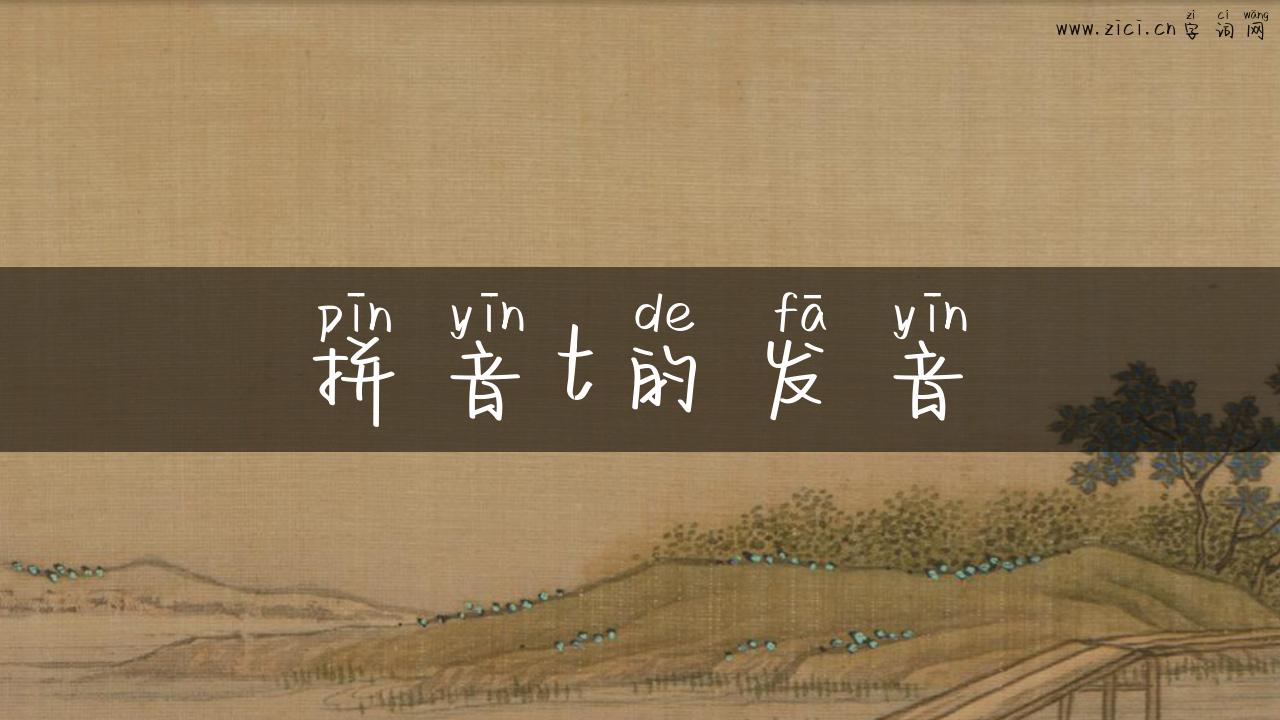 zì cí wǎng
www.zici.cn字词网
pīn yīn de fā yīn
拼音t的发音